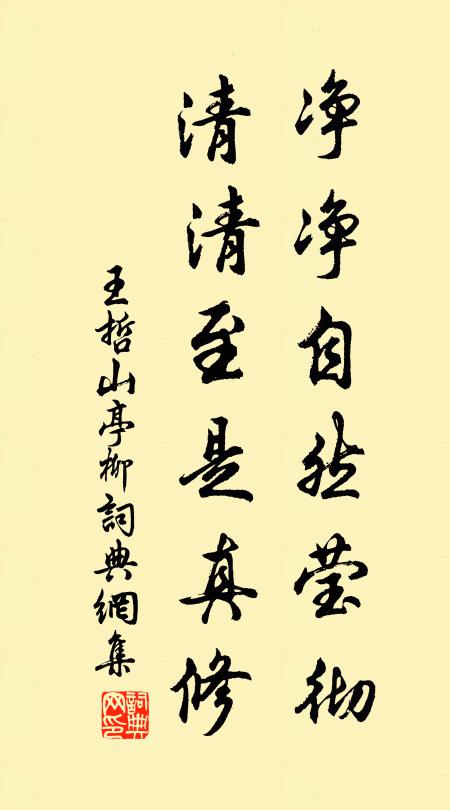 净净自然莹彻
清清至是真修
王哲山亭柳詞典網集
詞典网印